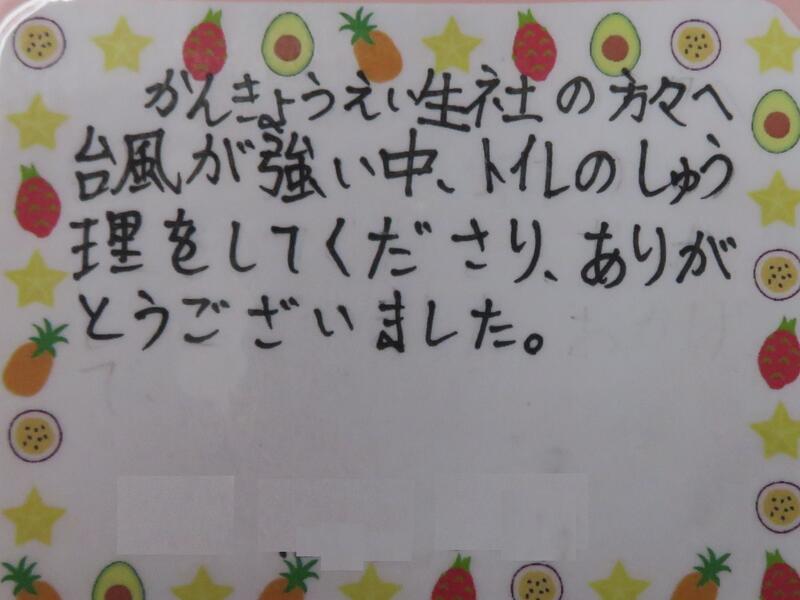 かんきょうえい生社の方々へ
台風が強い中、トイレのしゅう
理をしてくださり、ありが
とうございました。